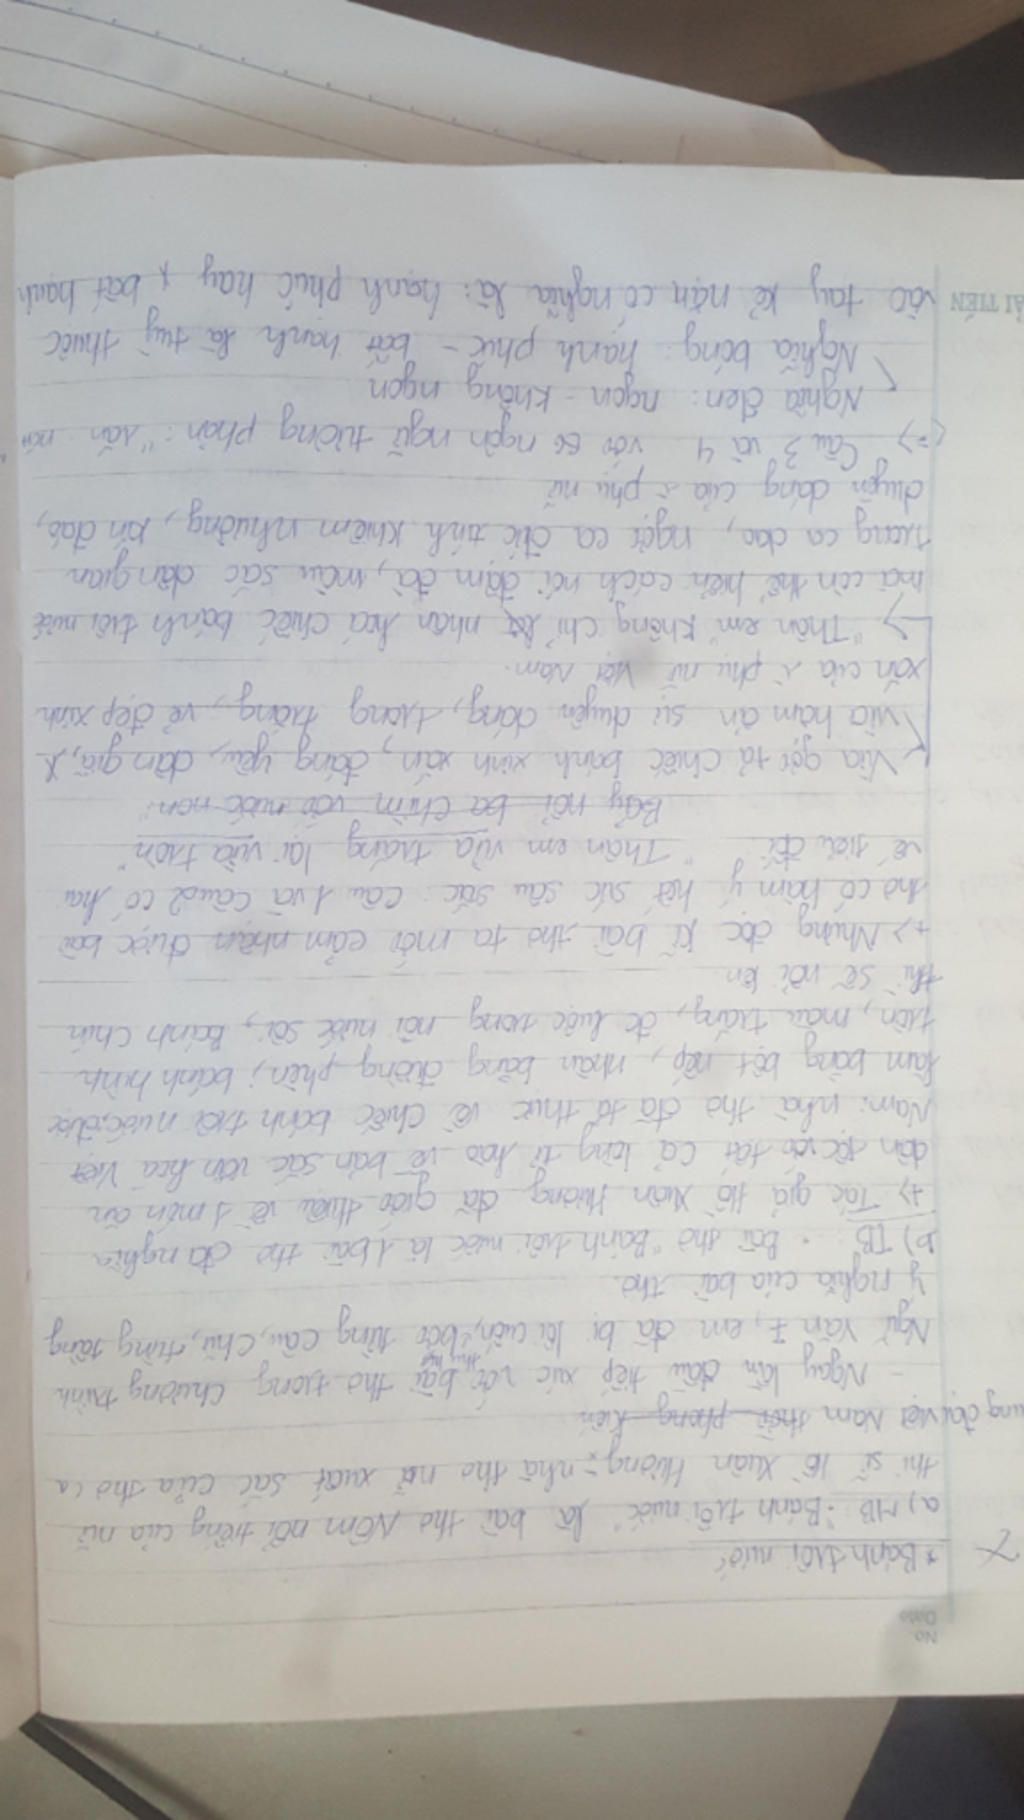 No
Date
* Bánh trôi nước
a) MB: "Bánh trôi nước" là bài thơ Nôm nổi tiếng của nữ
thi sĩ Hồ Xuân Hương - nhà thơ nữ xuất sắc của thơ ca
trung đại Việt Nam thời phong kiến
- Ngay lần đầu tiếp xúc với bài thơ trong chương trình
Ngữ Văn 7, em đã bị lôi cuốn bởi từng câu, chữ, từng tầng
ý nghĩa của bài thơ.
b) TB: • Bài thơ "Bánh trôi nước là 1 bài thơ đa nghĩa
+> Tác giả Hồ Xuân Hương đã giới thiệu về 1 món ăn
dân tộc với tất cả lòng tự hào về bản sắc văn hoá Việt
Nam: nhà thơ đã tả thực về chiếc bánh trôi nước, được
làm bằng bột nếp, nhân bằng đường phèn, bánh hình
tròn, màu trắng, đc luộc trong nồi nước sôi, Bánh chín
thì sẽ nổi lên
+> Nhưng đọc kĩ bài thơ ta mới cảm nhận được bài
thơ có hàm ý hết sức sâu sắc: Câu 1 và câu 2 có hai
vế tiểu đối: "Thân em vừa trắng lại vừa tròn"
Bảy nổi ba chìm với nước non"
Vừa gợi tả chiếc bánh xinh xắn, đáng yêu, dân giã,
vừa hàm ẩn sự duyên dáng, trong trắng, vẻ đẹp xinh
xắn của phụ nữ Việt Nam.
-> "Thân em" không chỉ nhân hoá chiếc bánh trôi nước
mà còn thể hiện cách nói đậm đà, màu sắc dân gian
trong ca dao, ngợi ca đức tính khiêm nhường, kín đáo,
duyên dáng của phụ nữ
=> Câu 3 và 4 với ngôn ngữ tương phản: "rắn nát"
Nghĩa đen: ngon - không ngon
Nghĩa bóng: hạnh phúc - bất hạnh là tuỳ thuộc
vào tay kẻ nặn có nghĩa là: hạnh phúc hay bất hạnh
HẢI TIẾN